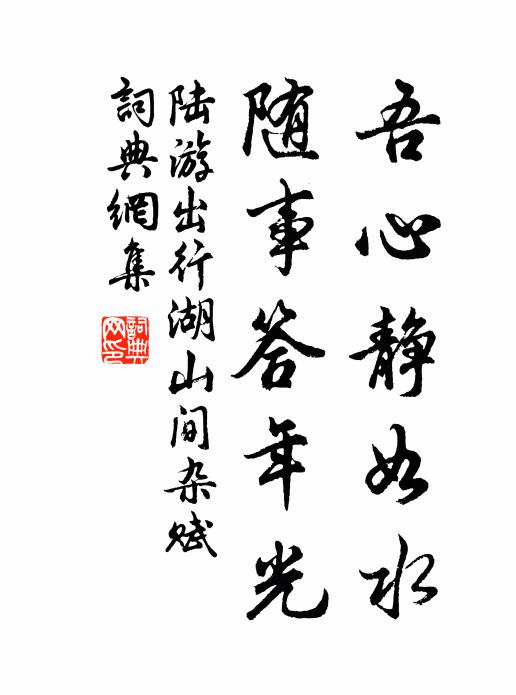 吾心静如水
随事答年光
陆游出行湖山间杂赋
詞典網集
詞典網印